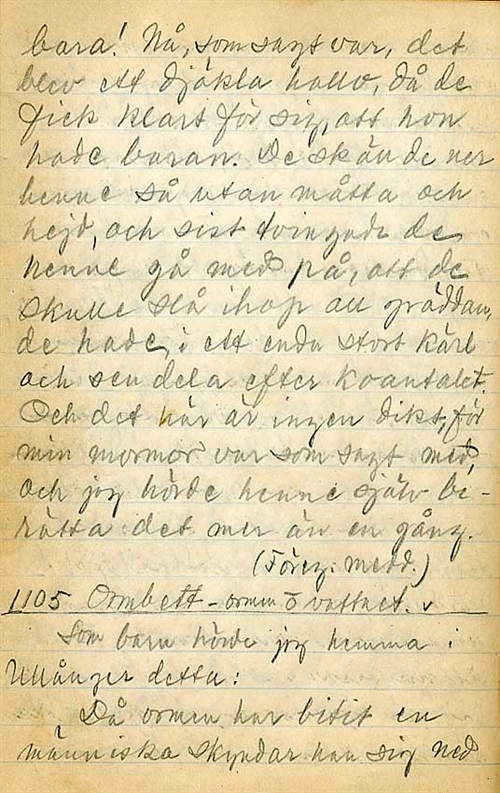 bara! Nå, som sagt var, det
blev ett djäkla hallo, då de
fick klart för sig, att hon
hade baran. De skände ner
henne så utan måtta och
hejd, och sist tvingade de
henne gå med på, att de
skulle slå ihop all gräddan,
de hade, i ett enda stort kärl
och sen dela efter koantalet.
Och det här är ingen dikt, för
min mormor var som sagt med,
och jag hörde henne själv be-
rätta det mer än en gång.
(Föreg. medd.)
1105 Ormbett - ormen o vattnet. v
Som barn hörde jag hemma i
Ullånger detta:
Då ormen har bitit en
människa skyndar han sig ned